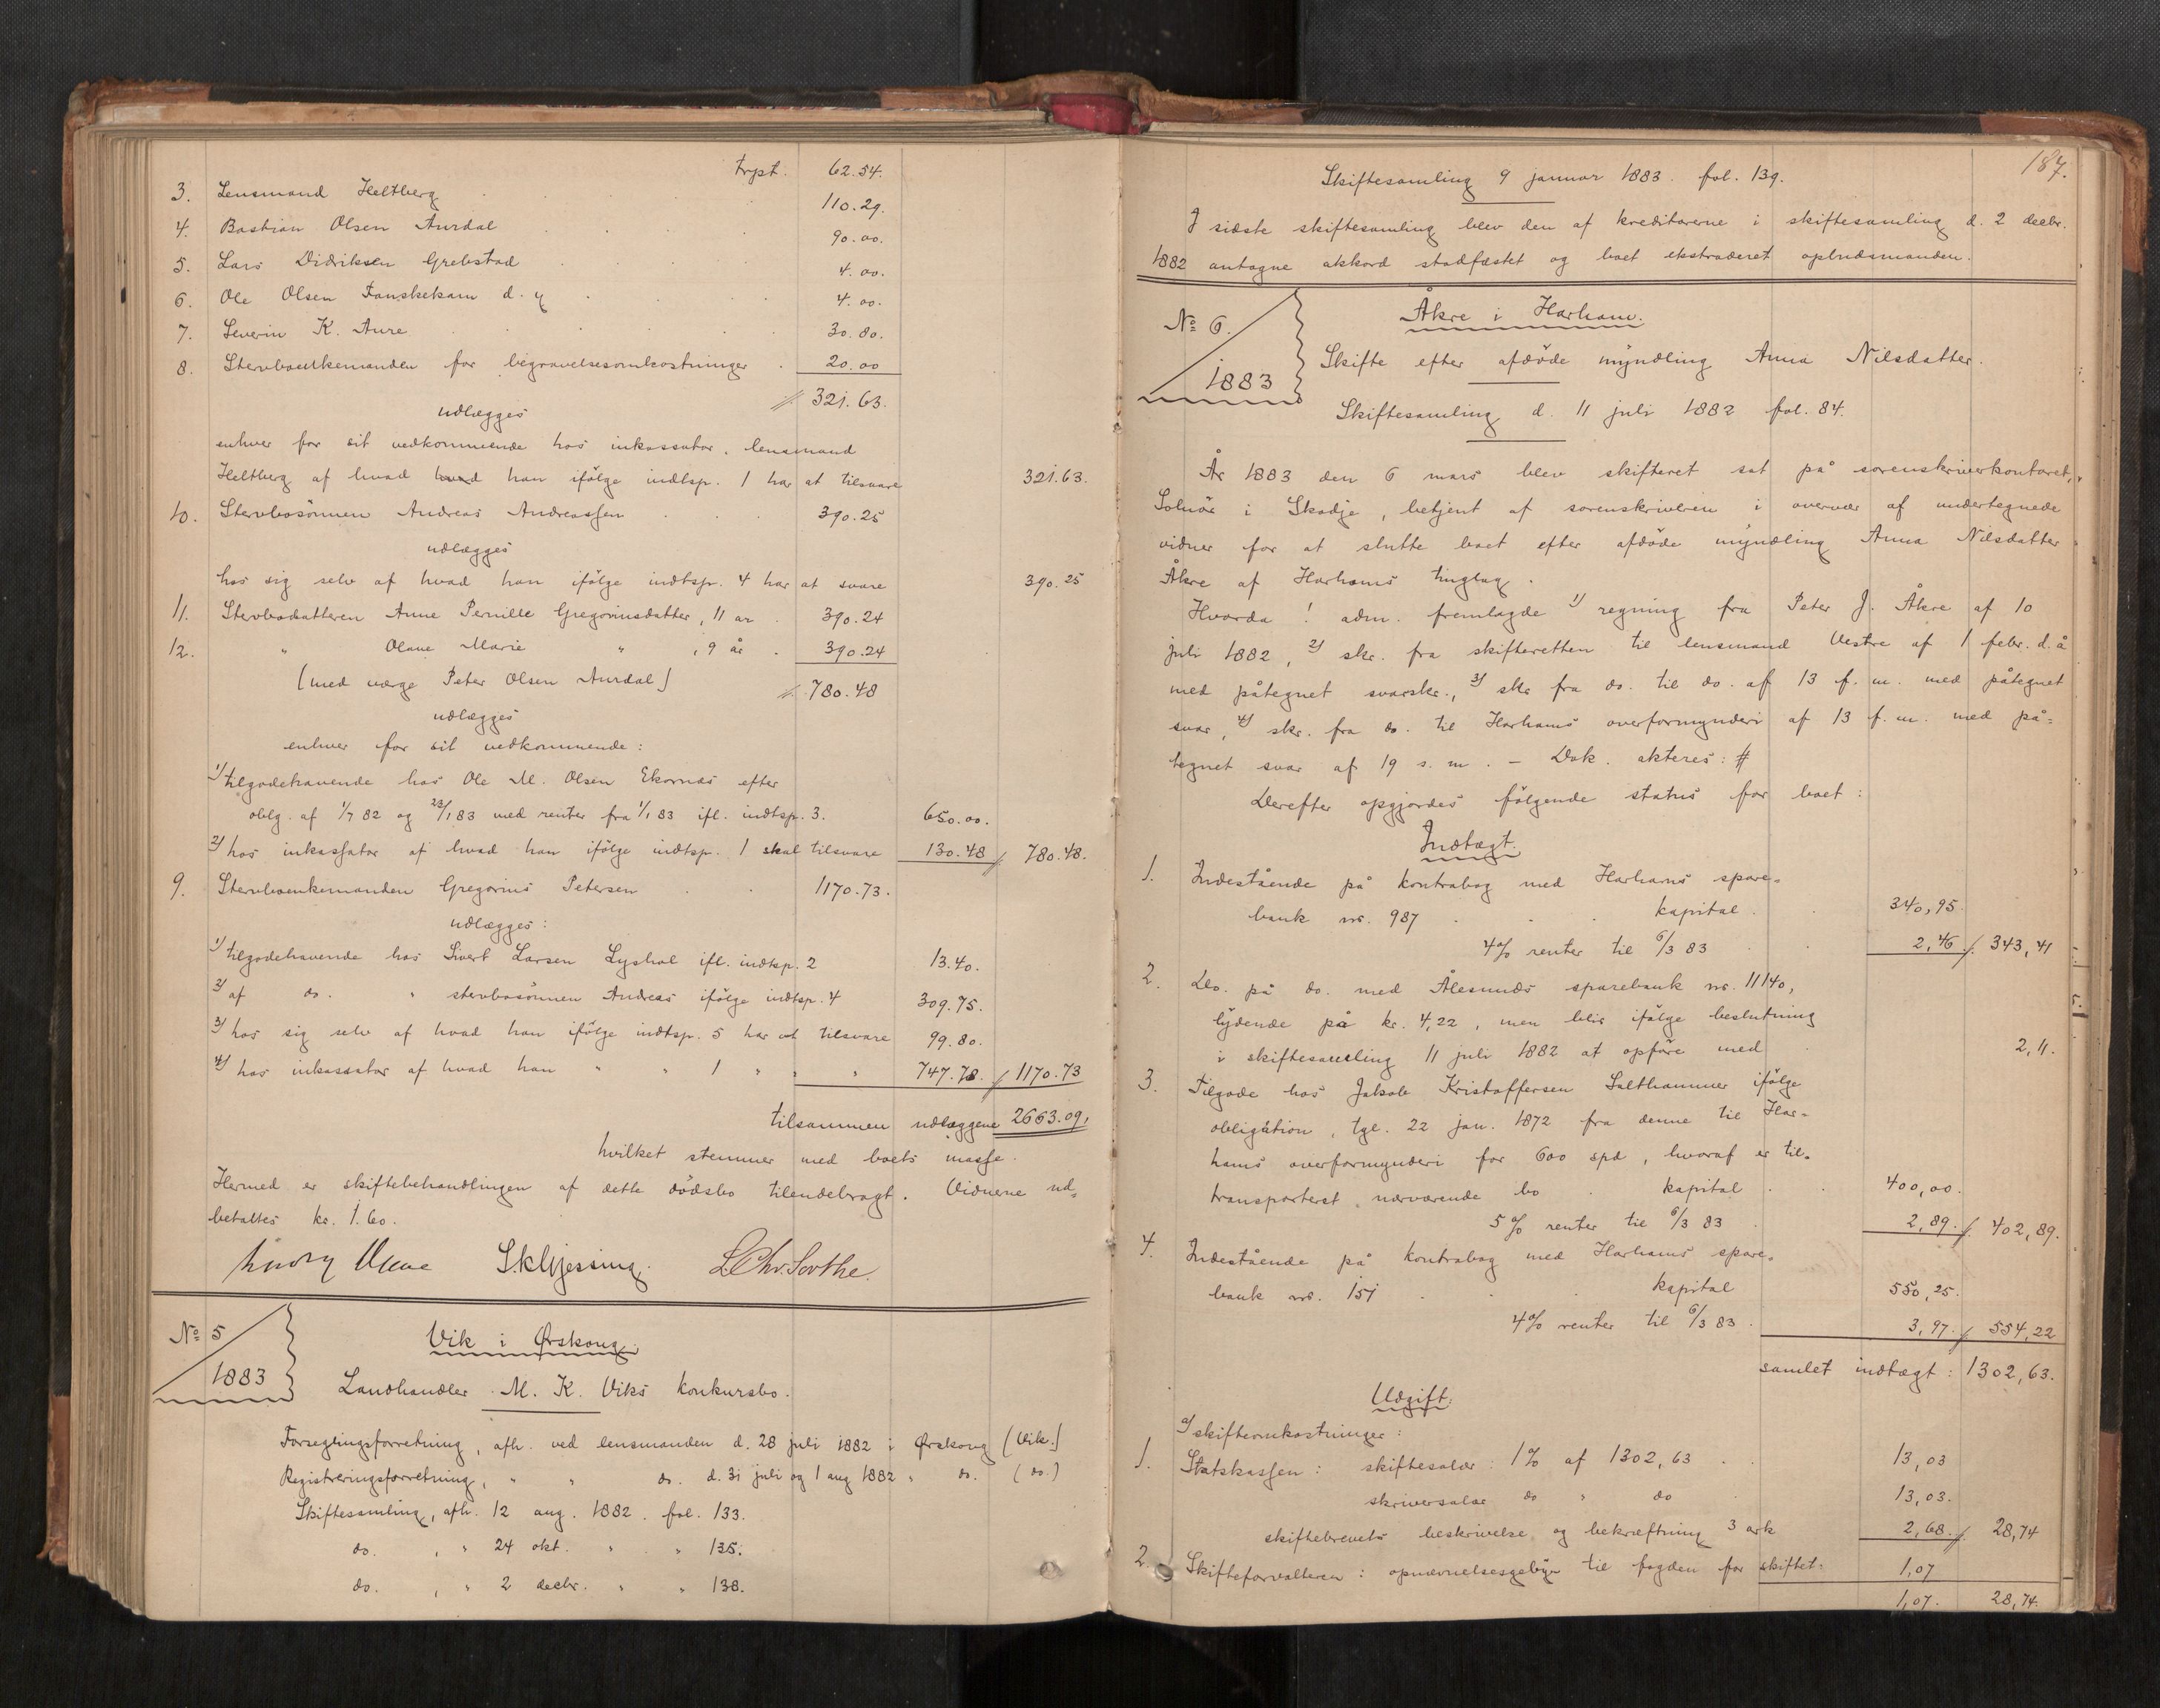 Trpt. 62.54.
3. Lensmand Heltberg 110.29.
4. Bastian Olsen Aurdal 90.00.
5. Lars Didriksen Grebstad 4.00.
6. Ole Olsen Fauskekam d. y 4.00.
7. Severin K. Aure 30.80.
8. Stervboenkemanden for begravelsesomkostninger 20.00
// 321.63.
udlægges
enhver for sit vedkommende hos inkassator, lensmand
Heltberg af hvad hvad han ifölge indtsp. 1 har at tilsvare 321.63.
10. Stervbosönnen Andreas Andreassen 390.25
udlægges
hos sig selv af hvad han ifölge indtsp. 4 har at svare 390.25
11. Stervbodatteren Anne Pernille Gregoriusdatter, 11 år 390.24
12. " Olave Marie " , 9 år 390.24
(med værge Peter Olsen Aurdal) // 780.48
udlægges
enhver for sit vedkommende:
1) tilgodehavende hos Ole M. Olsen Ekornæs efter
oblg. af 1/7 82 og 23/1 83 med renter fra 1/1 83 ifl. indtsp. 3. 650.00.
2) hos inkassator af hvad han ifölge indtsp. 1 skal tilsvare 130.48 /. 780.48.
9. Stervboenkemanden Gregorius Petersen 1170.73.
udlægges:
1) tilgodehavende hos Sivert Larsen Lyshol ifl. indtsp. 2 13.40.
2) af do. " stervbosönnen Andreas ifölge indtsp. 4 309.75.
3) hos sig selv af hvad han ifölge indtsp. 5 har at tilsvare 99.80.
4) hos inkassator af hvad han " " 1 " " " 747.78. /. 1170.73
tilsammen udlæggene 2663.09,
hvilket stemmer med boets masse.
Hermed er skiftebehandlingen af dette dödsbo tilendebragt. Vidnerne ud=
betaltes kr. 1.60.
L.Chr. Sorthe.
No 5
1883
Vik i Ørskoug.
Landhandler M. K. Viks konkursbo.
Forseglingsforretning, afh. ved lensmanden d. 28 juli 1882 i Ørskoug (Vik.)
Registreringsforretning, " " do. d. 31 juli og 1 aug 1882 " do. (do.)
Skiftesamling, afh. 12 aug. 1882. fol. 133.
do. , " 24 okt. " " 135.
do. , " 2 decbr. " " 138.
187.
Skiftesamling 9 januar 1883. fol. 139.
I sidste skiftesamling blev den af kreditorerne i skiftesamling d. 2 decbr.
1882 antagne akkord stadfæstet og boet ekstraderet opbudsmanden.
No 6.
1883
Åkre i Harham.
Skifte efter afdöde myndling Anna Nilsdatter.
Skiftesamling d. 11 juli 1882 fol. 84.
År 1883 den 6 mars blev skifteret sat på sorenskriverkontoret,
Solnör i Skodje, betjent af sorenskriveren i overvær af undertegnede
vidner for at slutte boet efter afdöde myndling Anna Nilsdatter
Åkre af Harhams tinglag.
Hvorda! adm. fremlagde 1) regning fra Peter J. Åkre af 10
juli 1882, 2) skr. fra skifteretten til lensmand Vestre af 1 febr. d. å
med påtegnet svarskr., 3) skr fra do. til do. af 13 f. m. med påtegnet
svar, 4) skr. fra do. til Harhams overformynderi af 13 f. m. med på=
tegnet svar af 19 s. m. – Dok. akteres: #
Derefter opgjordes fölgende status for boet:
Indtægt.
1. Indestående på kontrabog med Harhams spare=
bank nr. 987 kapital. 340,95.
4% renter til 6/3 83 2,46 /. 343,41
2. Do. på do. med Ålesunds sparebank nr. 11140,
lydende på kr. 4,22, men blir ifölge beslutning
i skiftesamling 11 juli 1882 at opföre med 2,11.
3. Tilgode hos Jakob Kristoffersen Salthammer ifölge
obligation, tgl. 22 jan. 1872 fra denne til Har=
hams overformynderi for 600 spd, hvoraf er til=
transporteret nærværende bo kapital 400,00.
5% renter til 6/3 83 2,89. /. 402,89.
4. Indestående på kontrabog med Harhams spare=
bank nr. 151 kapital 550,25.
4% renter til 6/3 83. 3,97. /. 554,22
samlet indtægt: 1302,63.
Udgift.
a) skifteomkostninger:
1. Statskassen: skiftesalær: 1% af 1302,63 13,03
skriversalær do " do 13,03.
skiftebrevets beskrivelse og bekræftning 3 ark 2,68. /. 28,74
2. Skifteforvalteren: opnævnelsesgebyr til fogden for skiftet: 1,07
1,07. 28,74.